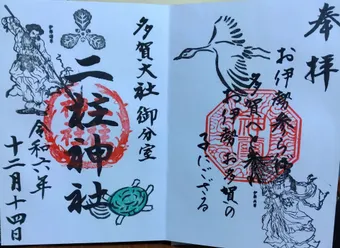 奉拝
お伊勢参らば
多賀へと参れ
お伊勢お多賀の
子にござる
多賀大社 御分室
二柱神社
令和六年
十二月十四日